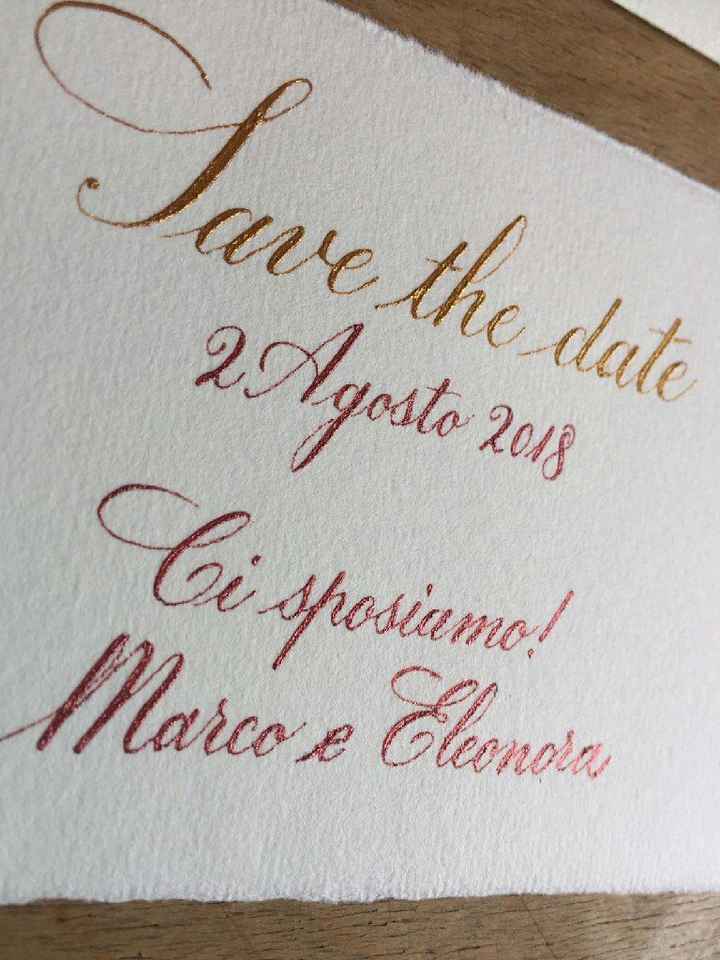 Save the date
2 Agosto 2018
Ci sposiamo!
Marco e Eleonora